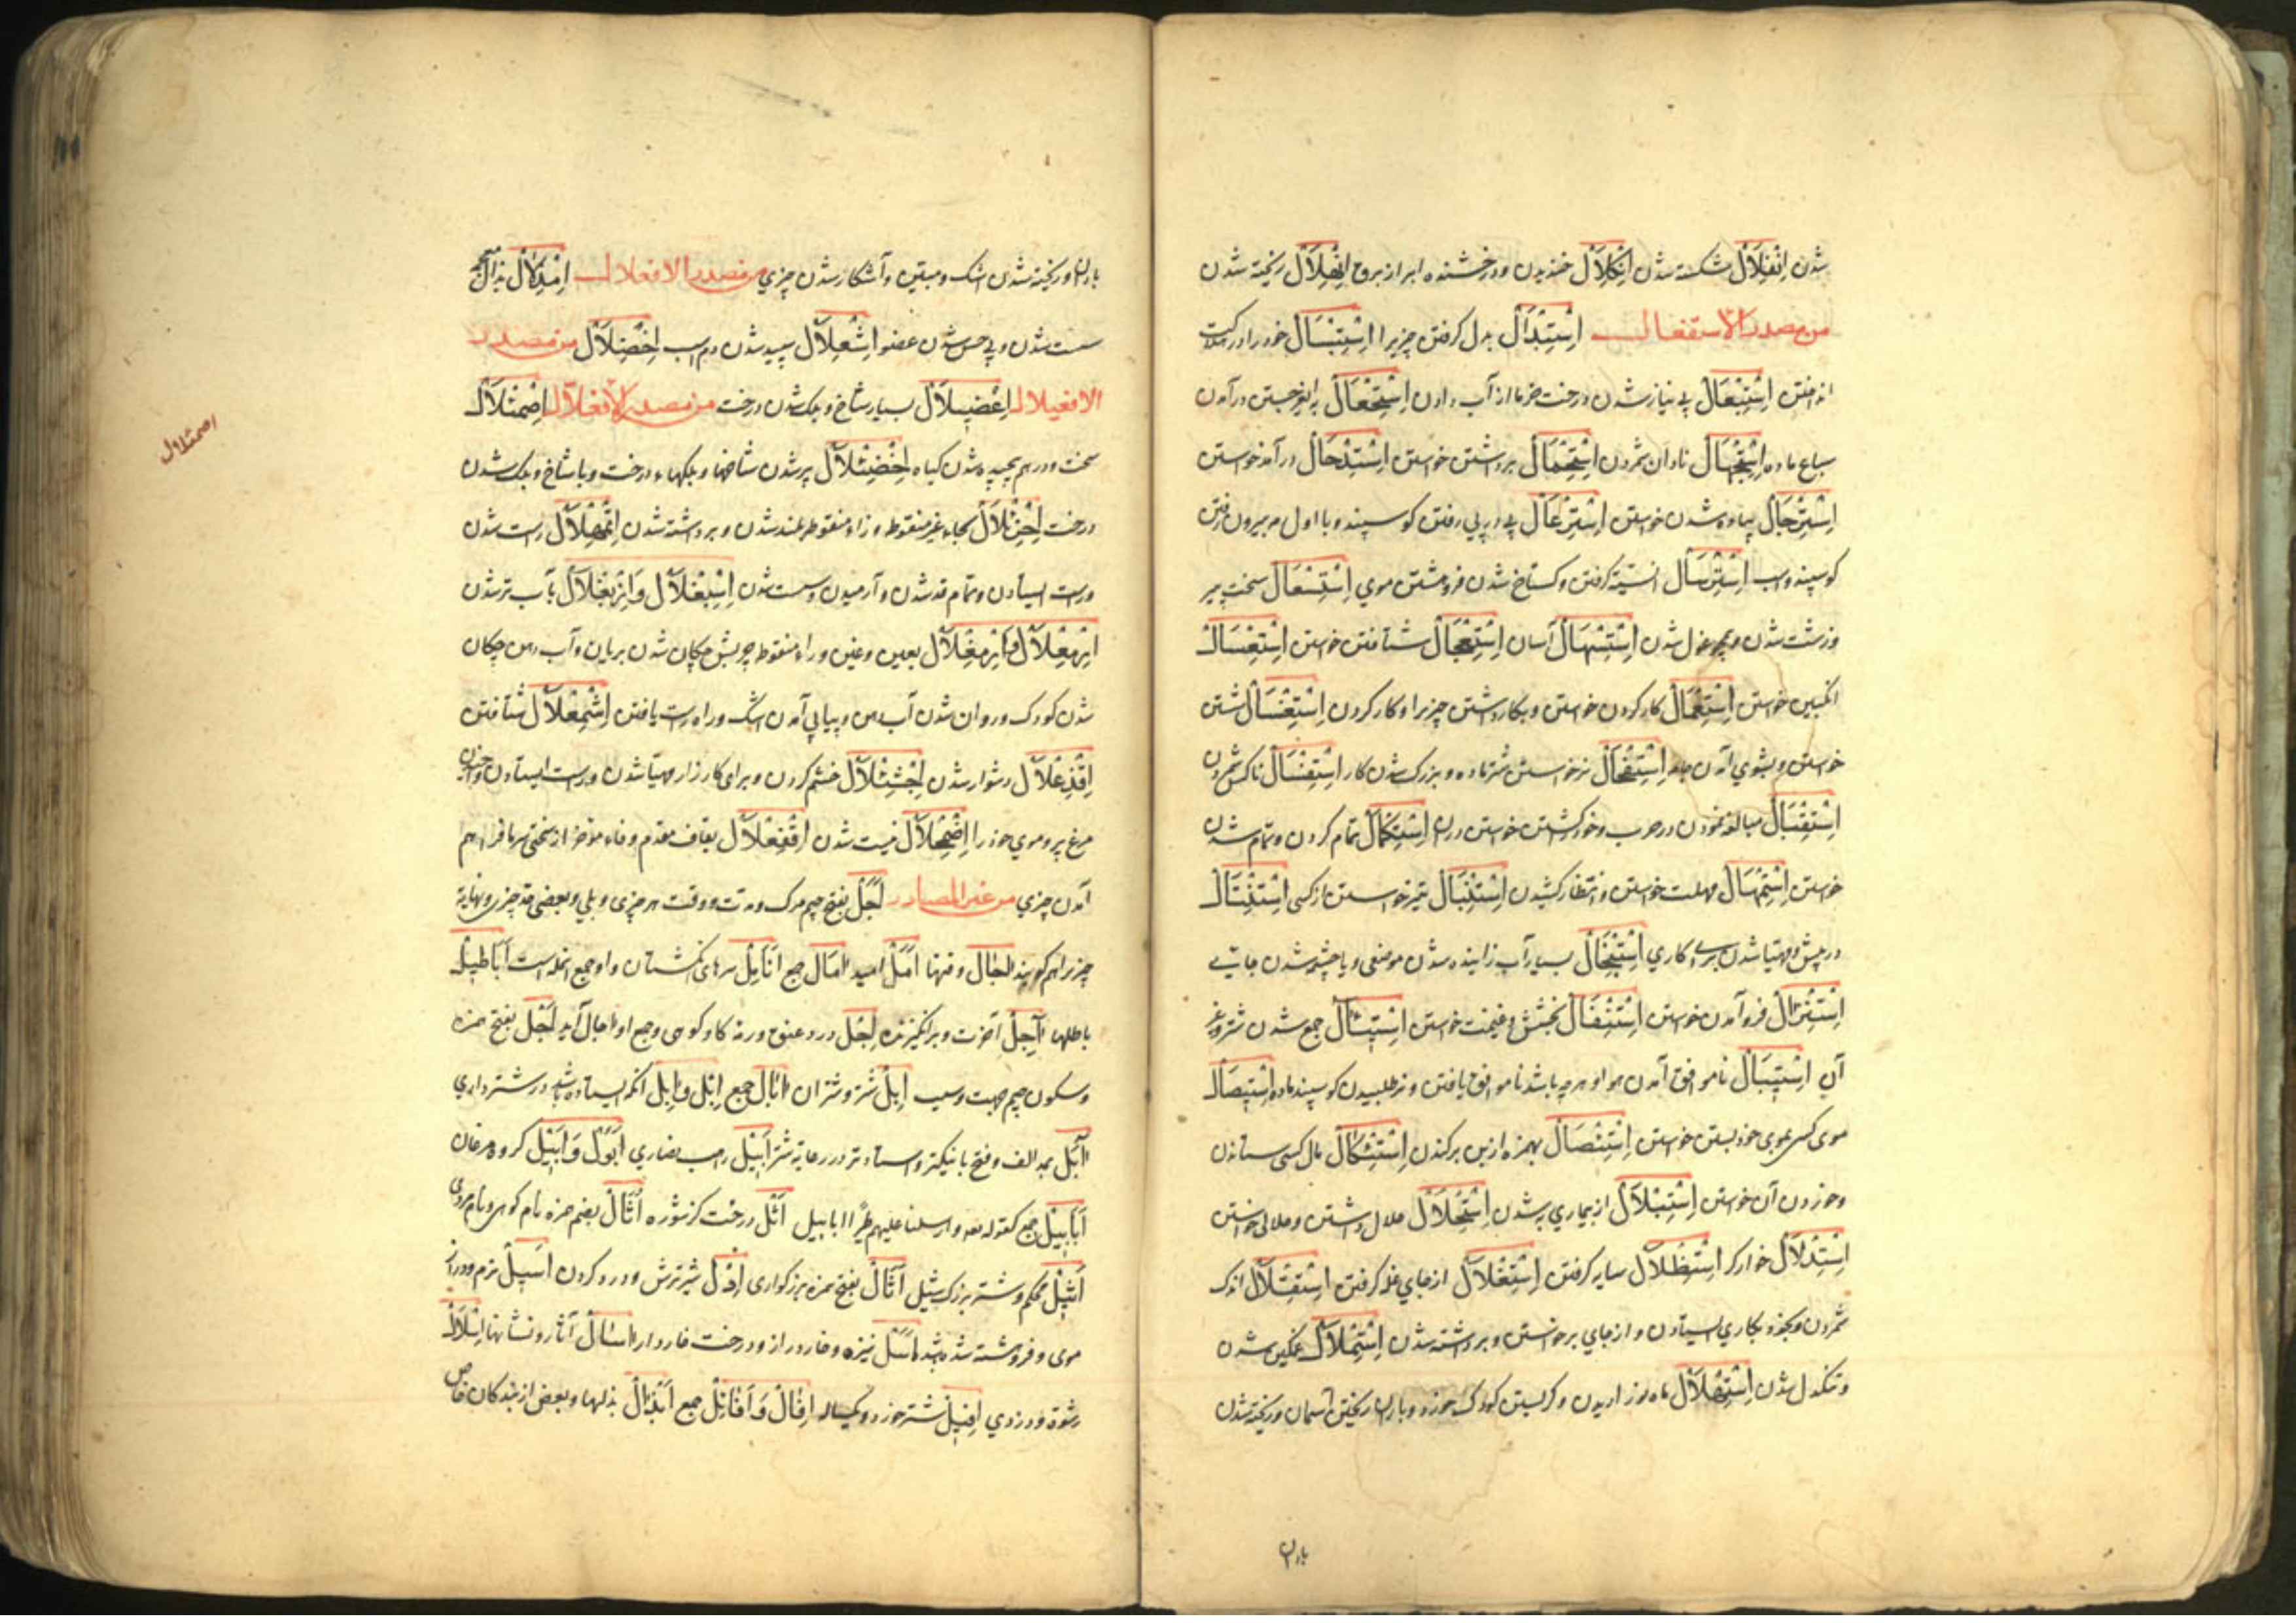 شدن اِنْفِلَالْ شکسته شدن اِنْکِلَالْ خندیدن و درخشنده ابر از بروق اِنْهِلَالْ ریخته شدن
من مصدر الاستفعال اِسْتِبْدَالْ بدل کرفتن چیزیرا اِسْتِبْسَالْ خود را در
انداختن اِسْتِبْعَالْ بی نیاز شدن درخت خرما از آب دادن اِسْتِجْعَالْ درآمدن
سباع ماده اِسْتِجْهَالْ نادان شمردن اِسْتِحْمَالْ برداشتن خواستن اِسْتِدْخَالْ درآمدن خواستن
اِسْتِرْجَالْ پیاده شدن خواستن اِسْتِرْعَالْ پی در پی رفتن کوسپند و با اول مه بیرون رفتن
کوسپند و اسب اِسْتِرْسَالْ کرفتن و کستاخ شدن فروهشتن موی سخت پیر
و زشت شدن و همچو غول شدن اِسْتِسْهَالْ آسان اِسْتِعْجَالْ شتافتن خواستن اِسْتِعْسَالْ
انکبین خواستن اِسْتِعْمَالْ کار کردن خواستن و بکار داشتن چیزیرا و کار کردن اِسْتِغْسَالْ شستن
خواستن و بشوی آمدن جامه اِسْتِفْحَالْ نر خواستن شتر ماده و بزرک شدن کار اِسْتِفْسَالْ ناکس شمردن
اِسْتِقْتَالْ مبالغه نمودن در حرب و خود کشتن خواستن در آن اِسْتِکْمَالْ تمام کردن و تمام شدن
خواستن اِسْتِمْهَالْ مهلت خواستن و انتظار کشیدن اِسْتِنْبَالْ تیر خواستن از کسی اِسْتِنْتَالْ
در پیش و مهیا شدن برای کاری اِسْتِنْجَالْ بسیار آب زاینده شدن موضعی و با چشمه شدن جایی
اِسْتِنْزَالْ فرو آمدن خواستن اِسْتِنْفَالْ بخشش و غنیمت خواستن جمع شدن شتر و غیر
آن اِسْتِیبَالْ ناموافق آمدن هوا و هرچه باشد ناموافق یافتن و نر طلبیدن کوسپند ماده اِسْتِیصَالْ
موی کسی بموی خود بستن خواستن اِسْتِئْصَالْ بهمزه از بن برکندن اِسْتِئْکَالْ مال کسی ستاندن
و خوردن آن خواستن اِسْتِبْلَالْ از بیماری به شدن اِسْتِحْلَالْ حلال داشتن و حلالی خواستن
اِسْتِذْلَالْ خوار کر اِسْتِظْلَالْ سایه کرفتن اِسْتِغْلَالْ از جای غله کرفتن اِسْتِقْلَالْ اندک
شمردن و بخود بکاری ایستادن و از جای برخواستن و برداشته شدن اِسْتِمْلَالْ غمکین شدن
و تنکدل شدن اِسْتِهْلَالْ ماه نو را دیدن و کریستن کودک خورد و باران ریختن آسمان و ریخته شدن
باران
باران و ریخته شدن اشک و آشکار شدن چیزی من مصدر الافعلال اِمْذِلَالْ
سست شدن و بی حس شدن عضو اِشْعِلَالْ سپید شدن دم اسب اِخْضِلَالْ من مصدر
الافعیلال اِغْضِیلَالْ بسیار شاخ و برک شدن درخت من مصدر الافعلّال اِصْمِئْلَالْ
سخت و درهم پیچیده شدن کیاه اِخْضِئْلَالْ پر شدن شاخها و برکهاء درخت و با شاخ و برک شدن
درخت اِحْزِئْلَالْ بحاء غیر منقوطه و زاء منقوطه بلند شدن و برداشته شدن اِتْمِهْلَالْ راست شدن
و راست ایستادن و تمام قد شدن و آرمیدن و سست شدن اِسْبِغْلَالْ وَاِزْبِغْلَالْ بآب تر شدن
اِرْمِعْلَالْ وَاِرْمِغْلَالْ بعین و غین و راء منقوطه چربش چکان شدن بریان و آب دهن چکان
شدن کودک و روان شدن آب دهن و پیاپی آمدن اشک و راه راست یافتن اِشْمِعْلَالْ شتافتن
اِقْذِعْلَالْ دشوار شدن اِجْثِئْلَالْ خشم کردن و برای کارزار مهیا شدن و راست ایستادن و
مرغ پر و موی خود را اِضْمِحْلَالْ نیست شدن اِقْفِعْلَالْ بقاف مقدم و فاء مؤخر از سختی سرما فراهم
آمدن چیزی من غیر المصادر اَجَلْ بفتح جیم مرک و مدت و وقت هر چیزی و بلی و بعضی مدة چیزی و نهایة
چیزیرا هم کویند اٰجَالْ وقتها اَمَلْ امید اٰمَالْ جمع اَنَامِلْ سرهای انکشتان و او جمع انمله است اَبَاطِیلْ
باطلها اٰجِلْ آخرت و برانکیزنده اِجْلْ درد عنق و رمه کاو کوهی و جمع او اٰجال آید اَجْلْ بفتح همزه
و سکون جیم جهت و سبب اِبِلْ شتر و شتران اٰبَالْ جمع اِبْل وَ اٰبِلْ انکه ایستاده باشد در شترداری
اٰبَلْ بمد الف و فتح با نیکتر و استادتر در رعایة شتر اَبِیلْ راهب نصاری اِبَّوْلْ وَ اِبِّیلْ کروه مرغان
اَبَابِیلْ جمع کقوله تعه وارسلنا علیهم طیرًا ابابیل اَثْلْ درخت کز شوره اُثَالْ بضم همزه نام کوهی و نام مردی
اَثِیلْ محکم و شتر بزرک اَثَالْ بفتح همزه بزرکواری اِدْلْ شیر ترش و درد کردن اَسِیلْ نرم و دراز
موی و فروهشته شده باشد اَسَلْ نیزه و خار دراز و درخت خاردار اٰسَالْ آثار و نشانها اِسْلَالْ
رشوة و دزدی اَفِیلْ شتر خورد و یکساله اِفَالْ وَ اَفَائِلْ جمع اَبْدَالْ بدلها و بعض از بندکان خاص
اصمئلال